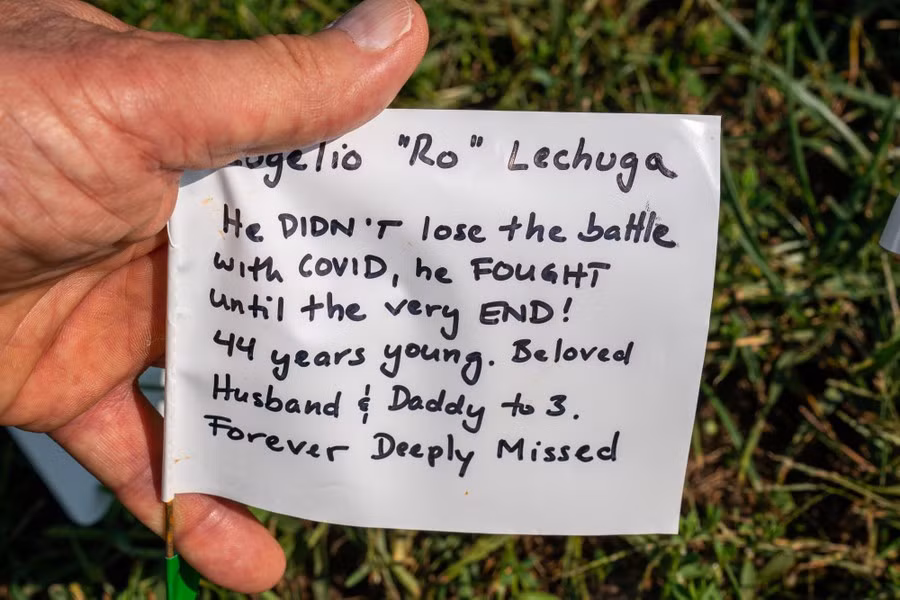 "Ro" Lechuga
He DIDN'T lose the battle
with COVID, he FOUGHT
until the very END!
44 years young. Beloved
Husband & Daddy to 3.
Forever Deeply Missed